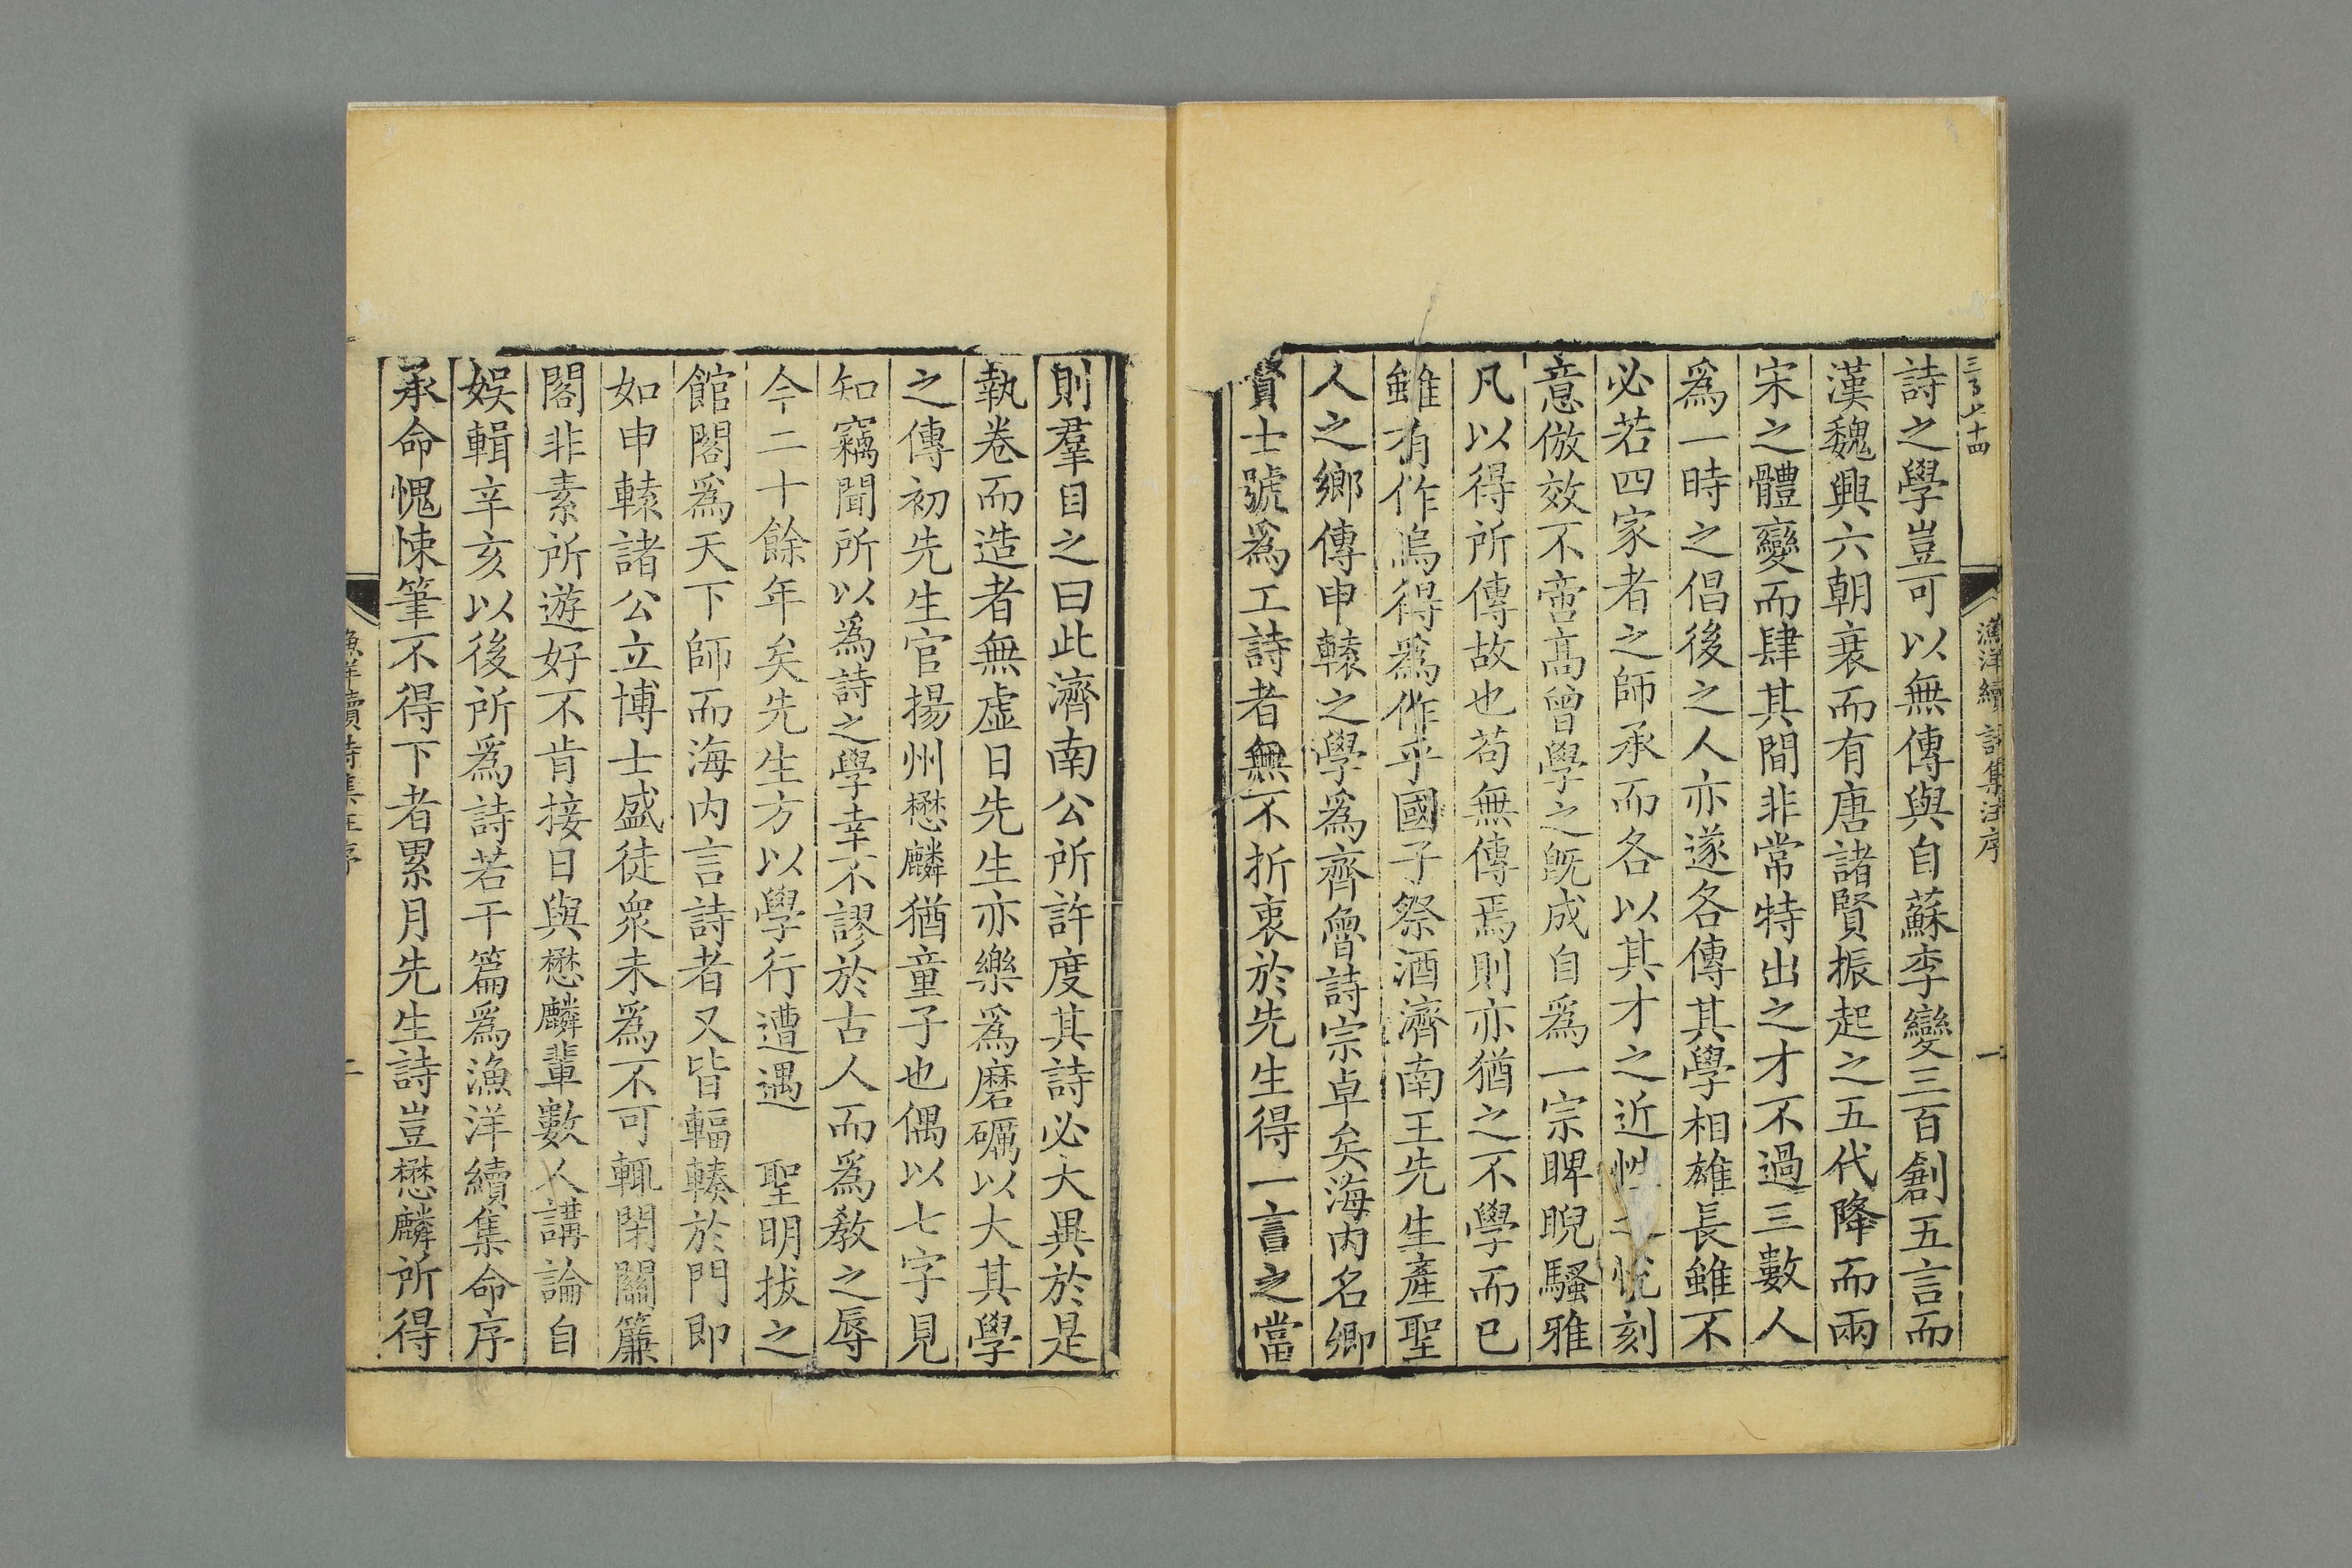 三百七十四
漁洋續詩集注序
一
詩之學豈可以無傳與自蘇李變三百創五言而
漢魏興六朝衰而有唐諸賢振起之五代降而兩
宋之體變而肆其間非常特出之才不過三數人
爲一時之倡後之人亦遂各傳其學相雄長雖不
必若四家者之師承而各以其才之近性悅刻
意倣效不啻高曾學之旣成自爲一宗睥睨騷雅
凡以得所傳故也苟無傳焉則亦猶之不學而已
雖有作烏得爲作乎國子祭酒濟南王先生產聖
人之鄉傳申轅之學爲齊魯詩宗卓矣海內名卿
賢士號爲工詩者無不折衷於先生得一言之當
則羣目之曰此濟南公所許度其詩必大異於是
執卷而造者無虛日先生亦樂爲磨礪以大其學
之傳初先生官揚州懋麟猶童子也偶以七字見
知竊聞所以爲詩之學幸不謬於古人而爲教之辱
今二十餘年矣先生方以學行遭遇 聖明拔之
館閣爲天下師而海內言詩者又皆輻輳於門即
如申轅諸公立博士盛徒衆未爲不可輒閉關簾
閣非素所遊好不肯接日與懋麟輩數人講論自
娛輯辛亥以後所爲詩若干篇爲漁洋續集命序
承命愧悚筆不得下者累月先生詩豈懋麟所得
漁洋續詩集注序
二